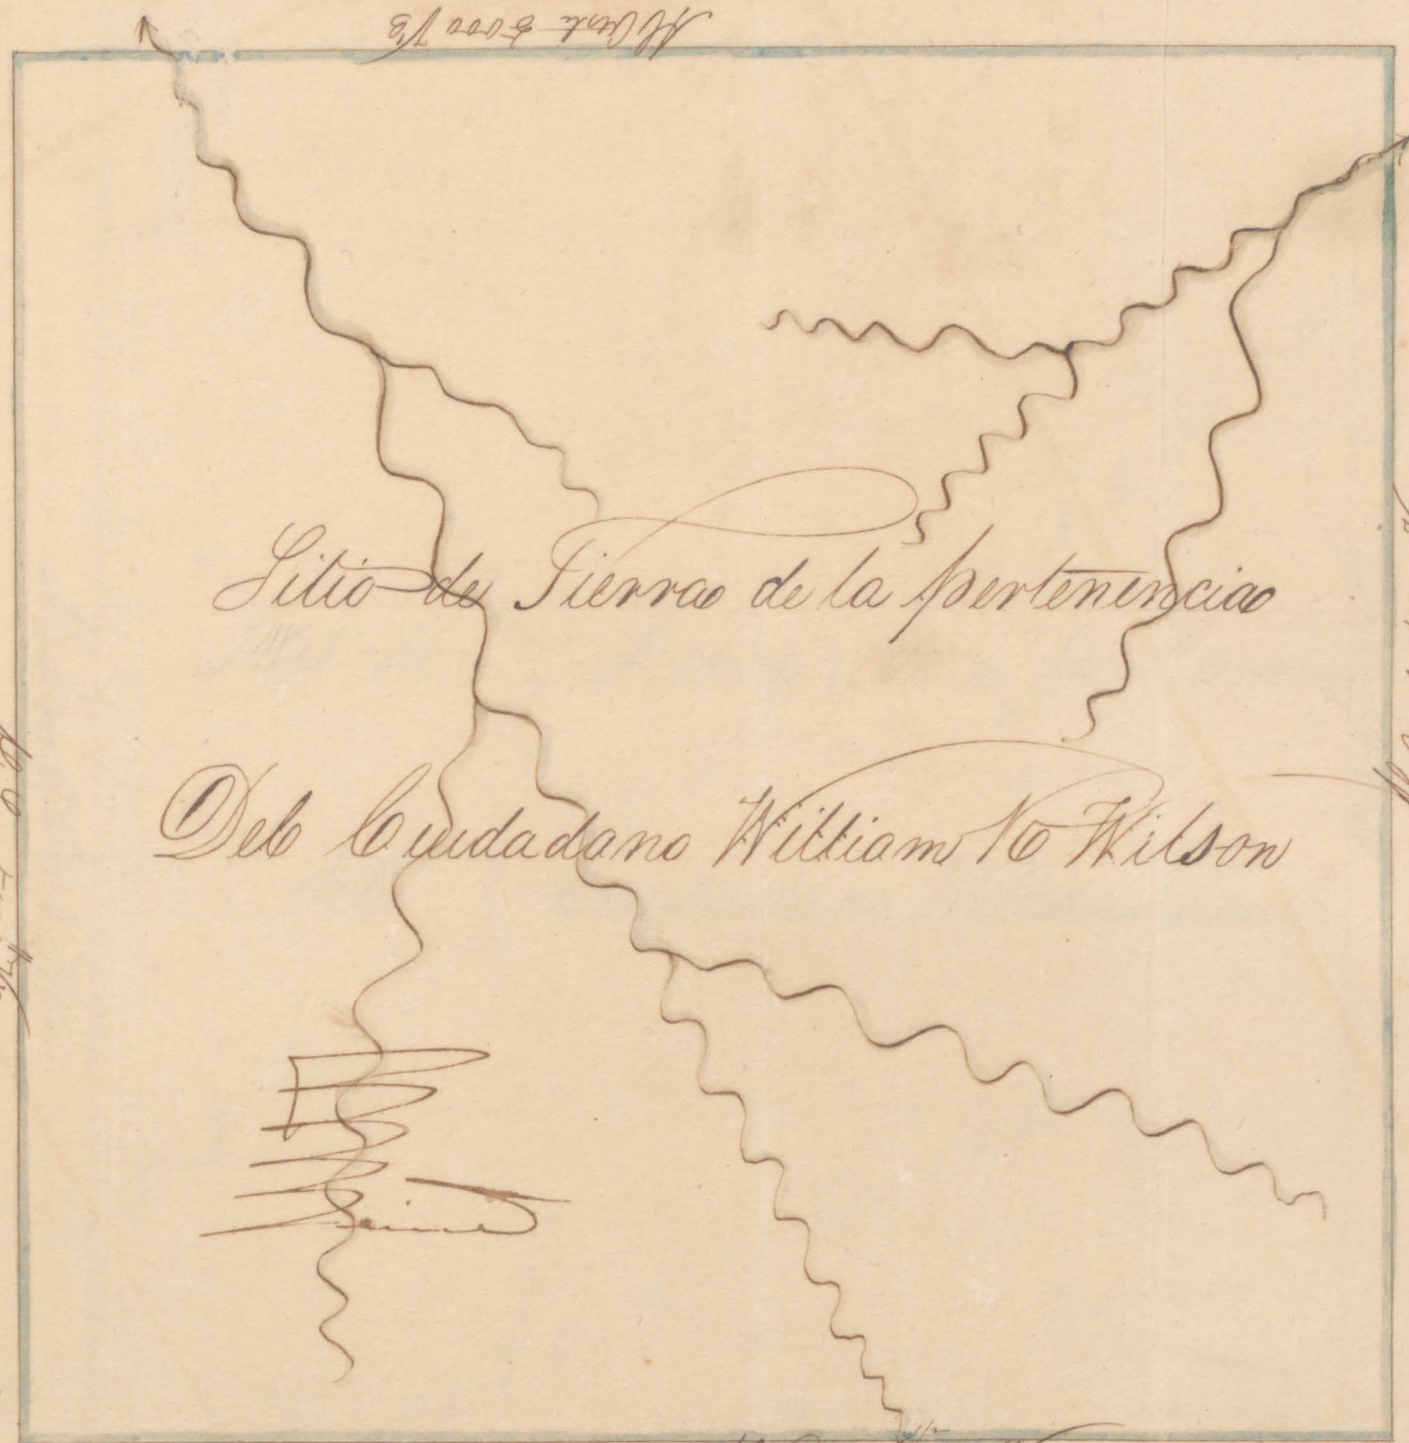 Al Oeste 5000 Vs
Sitio de Tierra de la pertenencia
Del Ciudadano William Wilson